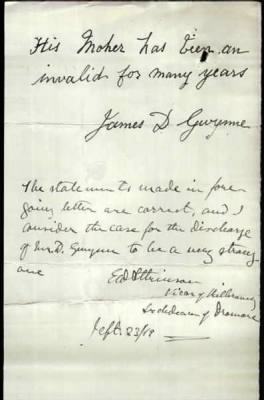 His Moher has been an
invalid for many years
James D Gwynne
The statements made in fore
going letter are correct, and I
consider the case for the discharge
of Mr D. Gwynne to be a very strong
one
E D Atkinson
Vicar of
Archdeacon of Dromore
Sept. 23/18